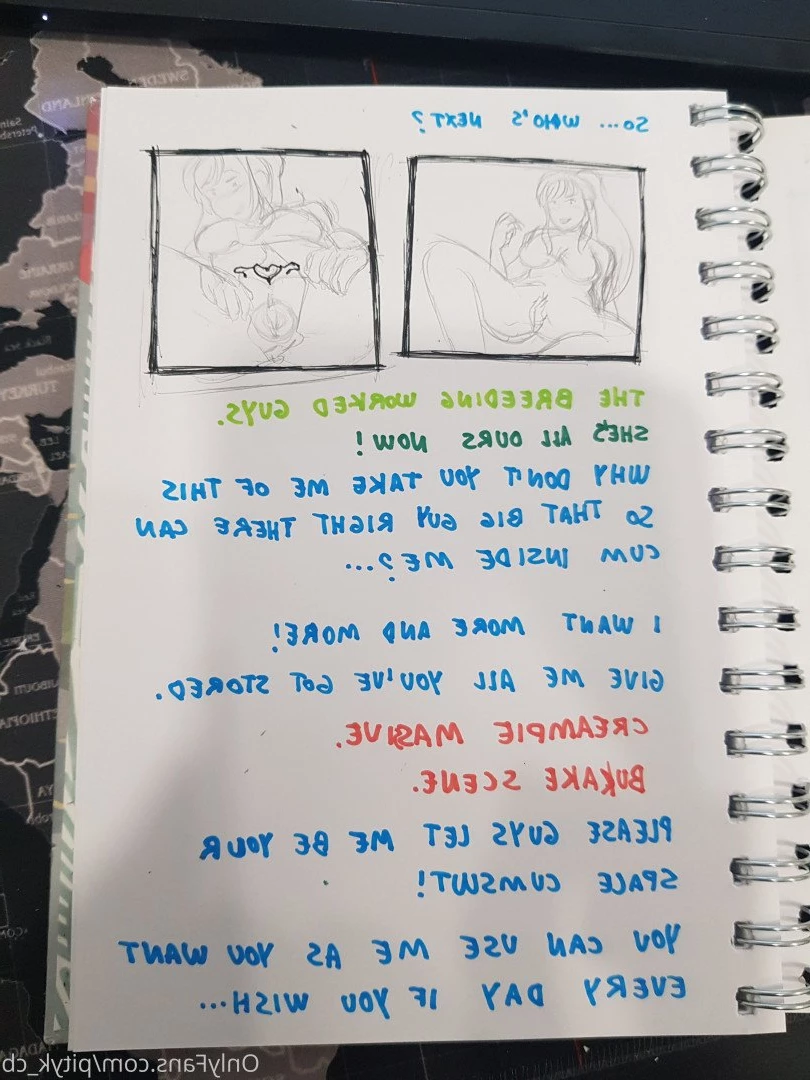 SO... WHO'S NEXT?
THE BREEDING WORKED GUYS.
SHE'S ALL OURS NOW!
WHY DON'T YOU TAKE ME OF THIS
SO THAT BIG GUY RIGHT THERE CAN
CUM INSIDE ME?...
I WANT MORE AND MORE!
GIVE ME ALL YOU'VE GOT STORED.
CREAMPIE MASSIVE.
BUKAKE SCENE.
PLEASE GUYS LET ME BE YOUR
SPACE CUMSLUT!
YOU CAN USE ME AS YOU WANT
EVERY DAY IF YOU WISH...
SWEDEN
UKRAINE
Black Sea
TURKEY
OnlyFans.com/pityk_cb